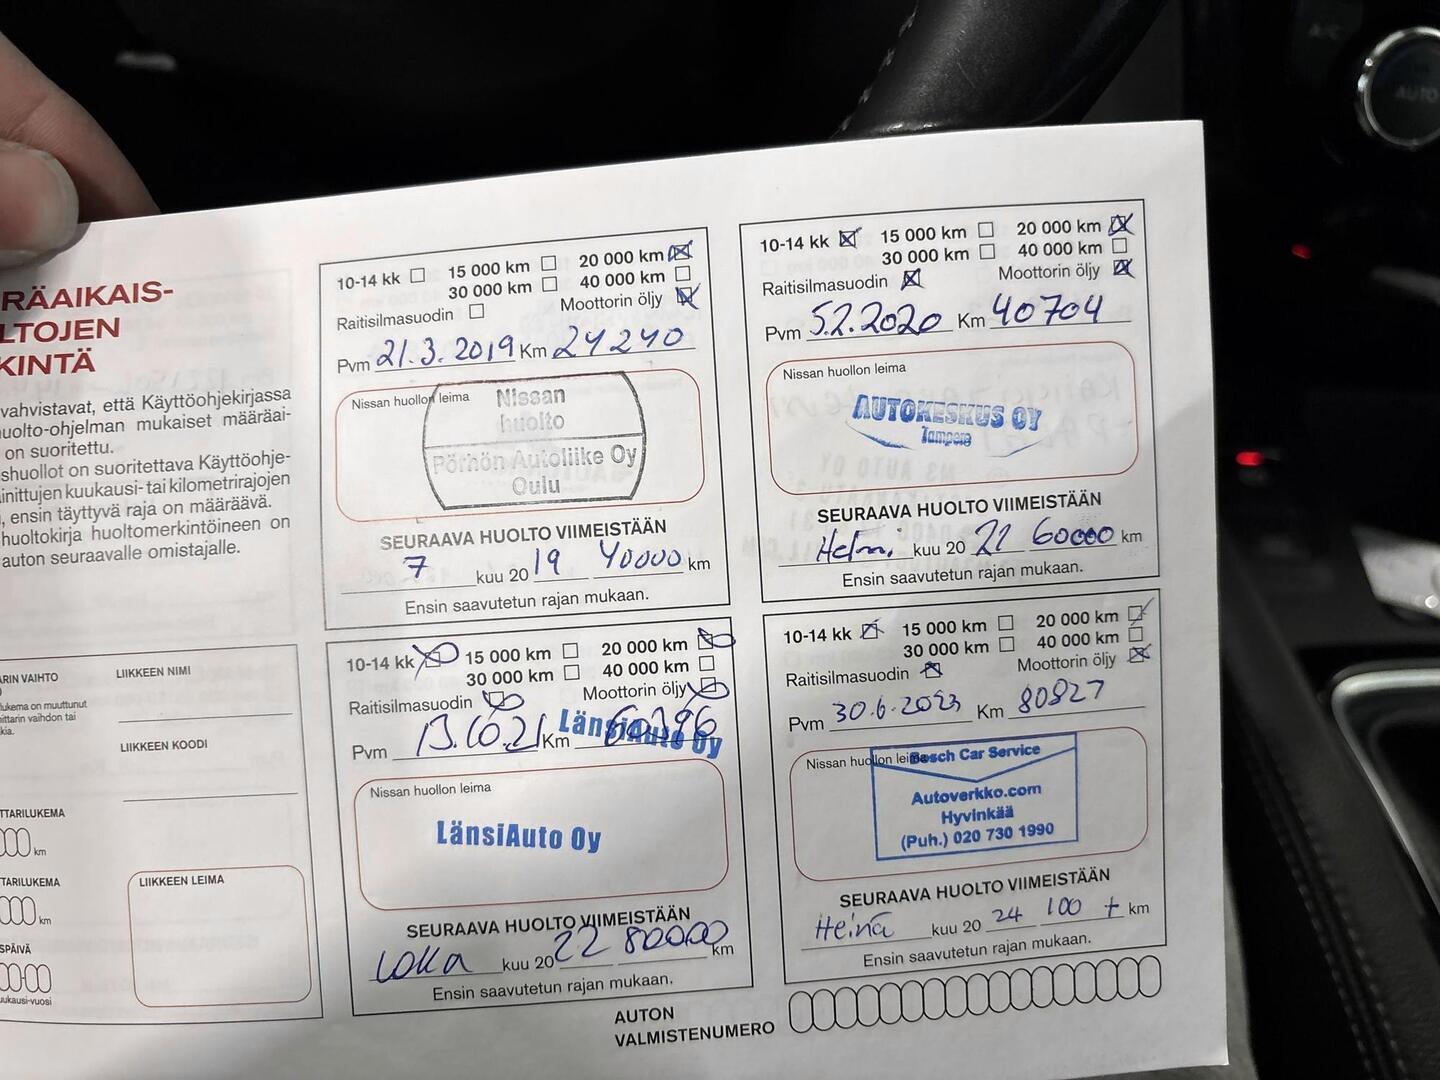 RÄAIKAIS-
LTOJEN
KINTÄ
vahvistavat, että Käyttöohjekirjassa
uolto-ohjelman mukaiset määräai-
on suoritettu.
shuollot on suoritettava Käyttöohje-
ainittujen kuukausi- tai kilometrirajojen
, ensin täyttyvä raja on määräävä.
huoltokirja huoltomerkintöineen on
auton seuraavalle omistajalle.
10-14 kk 15 000 km 20 000 km
30 000 km 40 000 km
Raitisilmasuodin Moottorin öljy
Pvm 21.3.2019 Km 24240
Nissan huollon leima
Nissan
huolto
Pörhön Autoliike Oy
Oulu
SEURAAVA HUOLTO VIIMEISTÄÄN
7 kuu 20 19 40000 km
Ensin saavutetun rajan mukaan.
10-14 kk 15 000 km 20 000 km
30 000 km 40 000 km
Raitisilmasuodin Moottorin öljy
Pvm 5.2.2020 Km 40704
Nissan huollon leima
AUTOKESKUS OY
Tampere
SEURAAVA HUOLTO VIIMEISTÄÄN
Helmi kuu 20 21 60000 km
Ensin saavutetun rajan mukaan.
ARIN VAIHTO
lukema on muuttunut
mittarin vaihdon tai
kia.
LIIKKEEN NIMI
LIIKKEEN KOODI
TTARILUKEMA
km
TARILUKEMA
km
SPÄIVÄ
uukausi-vuosi
LIIKKEEN LEIMA
10-14 kk 15 000 km 20 000 km
30 000 km 40 000 km
Raitisilmasuodin Moottorin öljy
Pvm 13.10.21 Km 60396
LänsiAuto Oy
Nissan huollon leima
LänsiAuto Oy
SEURAAVA HUOLTO VIIMEISTÄÄN
Loka kuu 20 22 80000 km
Ensin saavutetun rajan mukaan.
10-14 kk 15 000 km 20 000 km
30 000 km 40 000 km
Raitisilmasuodin Moottorin öljy
Pvm 30.6.2023 Km 80827
Nissan huollon leima
Bosch Car Service
Autoverkko.com
Hyvinkää
(Puh.) 020 730 1990
SEURAAVA HUOLTO VIIMEISTÄÄN
Heinä kuu 20 24 100 t km
Ensin saavutetun rajan mukaan.
AUTON
VALMISTENUMERO
AUTO